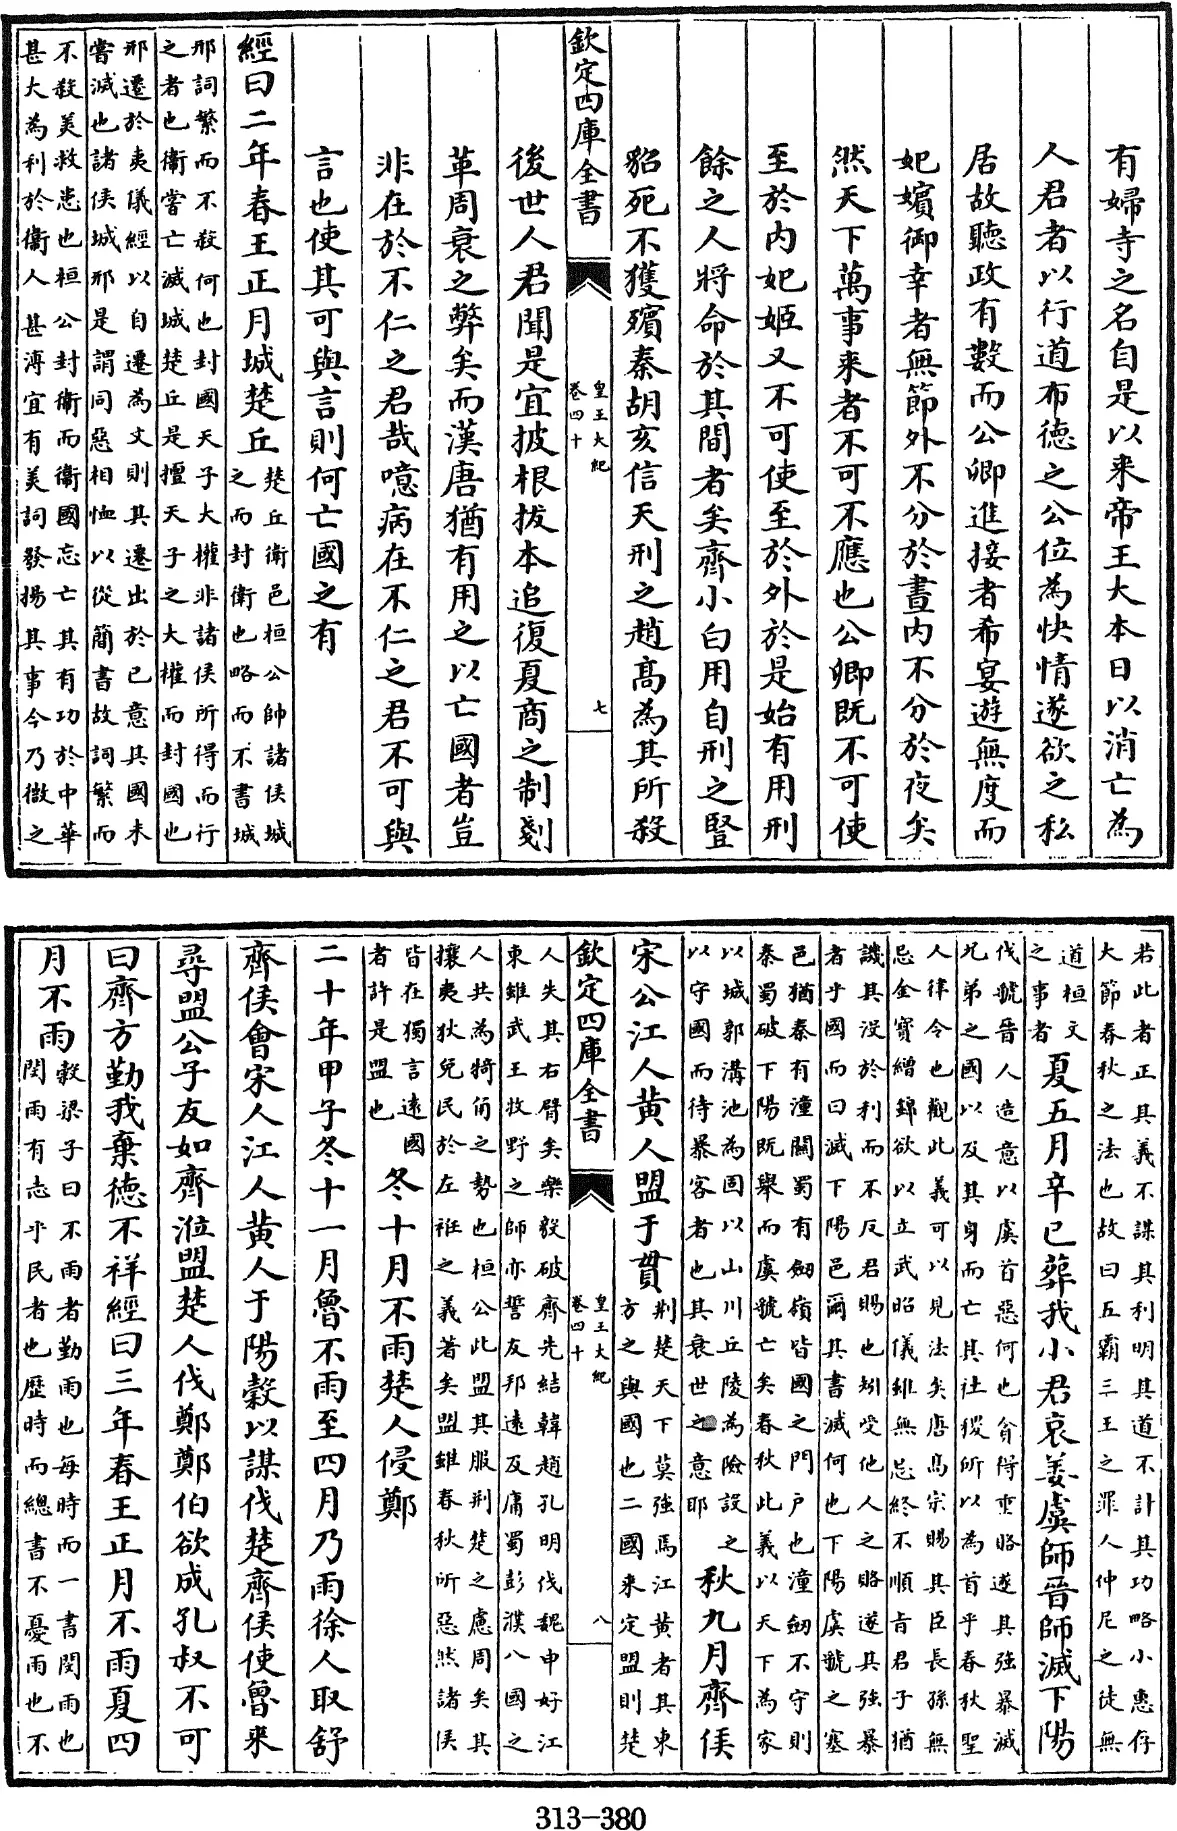 有婦寺之名自是以来帝王大本日以消亡為
人君者以行道布德之公位為快情遂欲之私
居故聽政有數而公卿進接者希宴遊無度而
妃嬪御幸者無節外不分於晝内不分於夜矣
然天下萬事来者不可不應也公卿既不可使
至於内妃姬又不可使至於外於是始有用刑
餘之人將命於其間者矣齊小白用自刑之豎
貂死不獲殯秦胡亥信天刑之趙高為其所殺
欽定四庫全書
皇王大紀
卷四十
七
後世人君聞是宜披根拔本追復夏商之制剗
革周衰之弊矣而漢唐猶有用之以亡國者豈
非在於不仁之君哉噫病在不仁之君不可與
言也使其可與言則何亡國之有
經曰二年春王正月城楚丘
楚丘衛邑桓公帥諸侯城
之而封衛也略而不書城
邢詞繁而不殺何也封國天子大權非諸侯所得而行
之者也衛嘗亡滅城楚丘是擅天子之大權而封國也
邢遷於夷儀經以自遷為文則其遷出於已意其國未
嘗滅也諸侯城邢是謂同惡相恤以從簡書故詞繁而
不殺美救患也桓公封衛而衛國忘亡其有功於中華
甚大為利於衛人甚溥宜有美詞發揚其事今乃微之
若此者正其義不謀其利明其道不計其功略小惠存
大節春秋之法也故曰五霸三王之罪人仲尼之徒無
道桓文
之事者
夏五月辛巳葬我小君哀姜虞師晉師滅下陽
伐虢晉人造意以虞首惡何也貪得重賂遂其強暴滅
兄弟之國以及其身而亡其社稷所以為首乎春秋聖
人律令也觀此義可以見法矣唐髙宗賜其臣長孫無
忌金寳繒錦欲以立武昭儀雖無忌終不順肯君子猶
譏其没於利而不反君賜也矧受他人之賂遂其強暴
者乎國而曰滅下陽邑爾其書滅何也下陽虞虢之塞
邑猶秦有潼關蜀有劒嶺皆國之門户也潼劒不守則
秦蜀破下陽既舉而虞虢亡矣春秋此義以天下為家
以城郭溝池為固以山川丘陵為險設之
以守國而待暴客者也其衰世之意耶
秋九月齊侯
宋公江人黄人盟于貫
荆楚天下莫強焉江黄者其東
方之與國也二國来定盟則楚
欽定四庫全書
皇王大紀
卷四十
八
人失其右臂矣樂毅破齊先結韓趙孔明伐魏申好江
東雖武王牧野之師亦誓友邦遠及庸蜀彭濮八國之
人共為犄角之勢也桓公此盟其服荆楚之慮周矣其
攘夷狄免民於左衽之義著矣盟雖春秋所惡然諸侯
皆在獨言遠國
者許是盟也
冬十月不雨楚人侵鄭
二十年甲子冬十一月魯不雨至四月乃雨徐人取舒
齊侯會宋人江人黄人于陽穀以謀伐楚齊侯使魯来
尋盟公子友如齊涖盟楚人伐鄭鄭伯欲成孔叔不可
曰齊方勤我棄德不祥經曰三年春王正月不雨夏四
月不雨
穀梁子曰不雨者勤雨也每時而一書閔雨也
閔雨有志乎民者也歴時而總書不憂雨也不
313-380